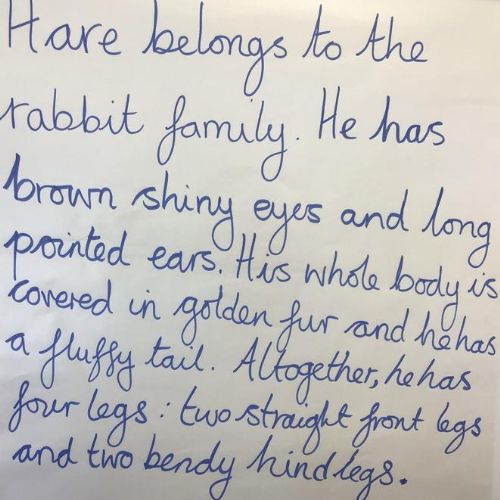 Hare belongs to the
rabbit family. He has
brown shiny eyes and long
pointed ears. His whole body is
covered in golden fur and he has
a fluffy tail. Altogether, he has
four legs : two straight front legs
and two bendy hind legs.